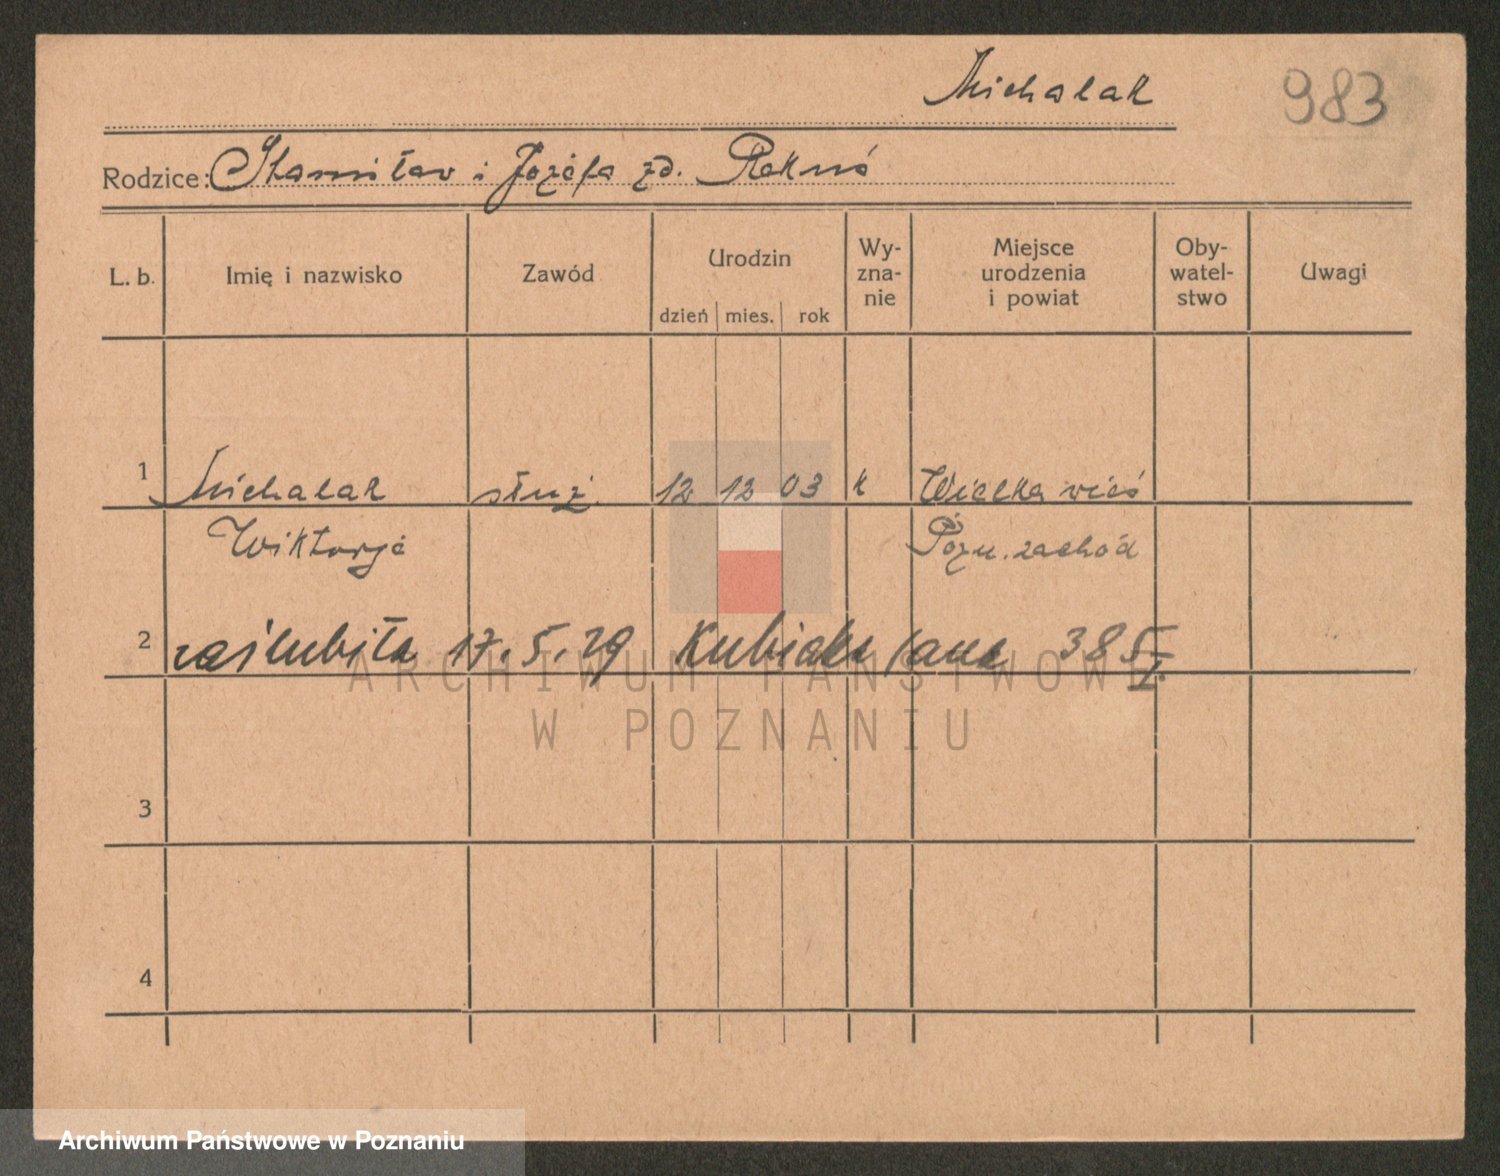 Michalak
983
Rodzice: Stanisław i Józefa zd.
L. b. Imię i nazwisko Zawód Urodzin dzień mies. rok Wy-zna-nie Miejsce urodzenia i powiat Oby-watel-stwo Uwagi
1 Michalak służ. 12 12 03 k Wielka wieś
Wiktorja Pozn. zachód
2 zaślubiła 17.5.29 Kubiaka Jana 385 I.
3
4
ARCHIWUM PAŃSTWOWE
W POZNANIU
Archiwum Państwowe w Poznaniu